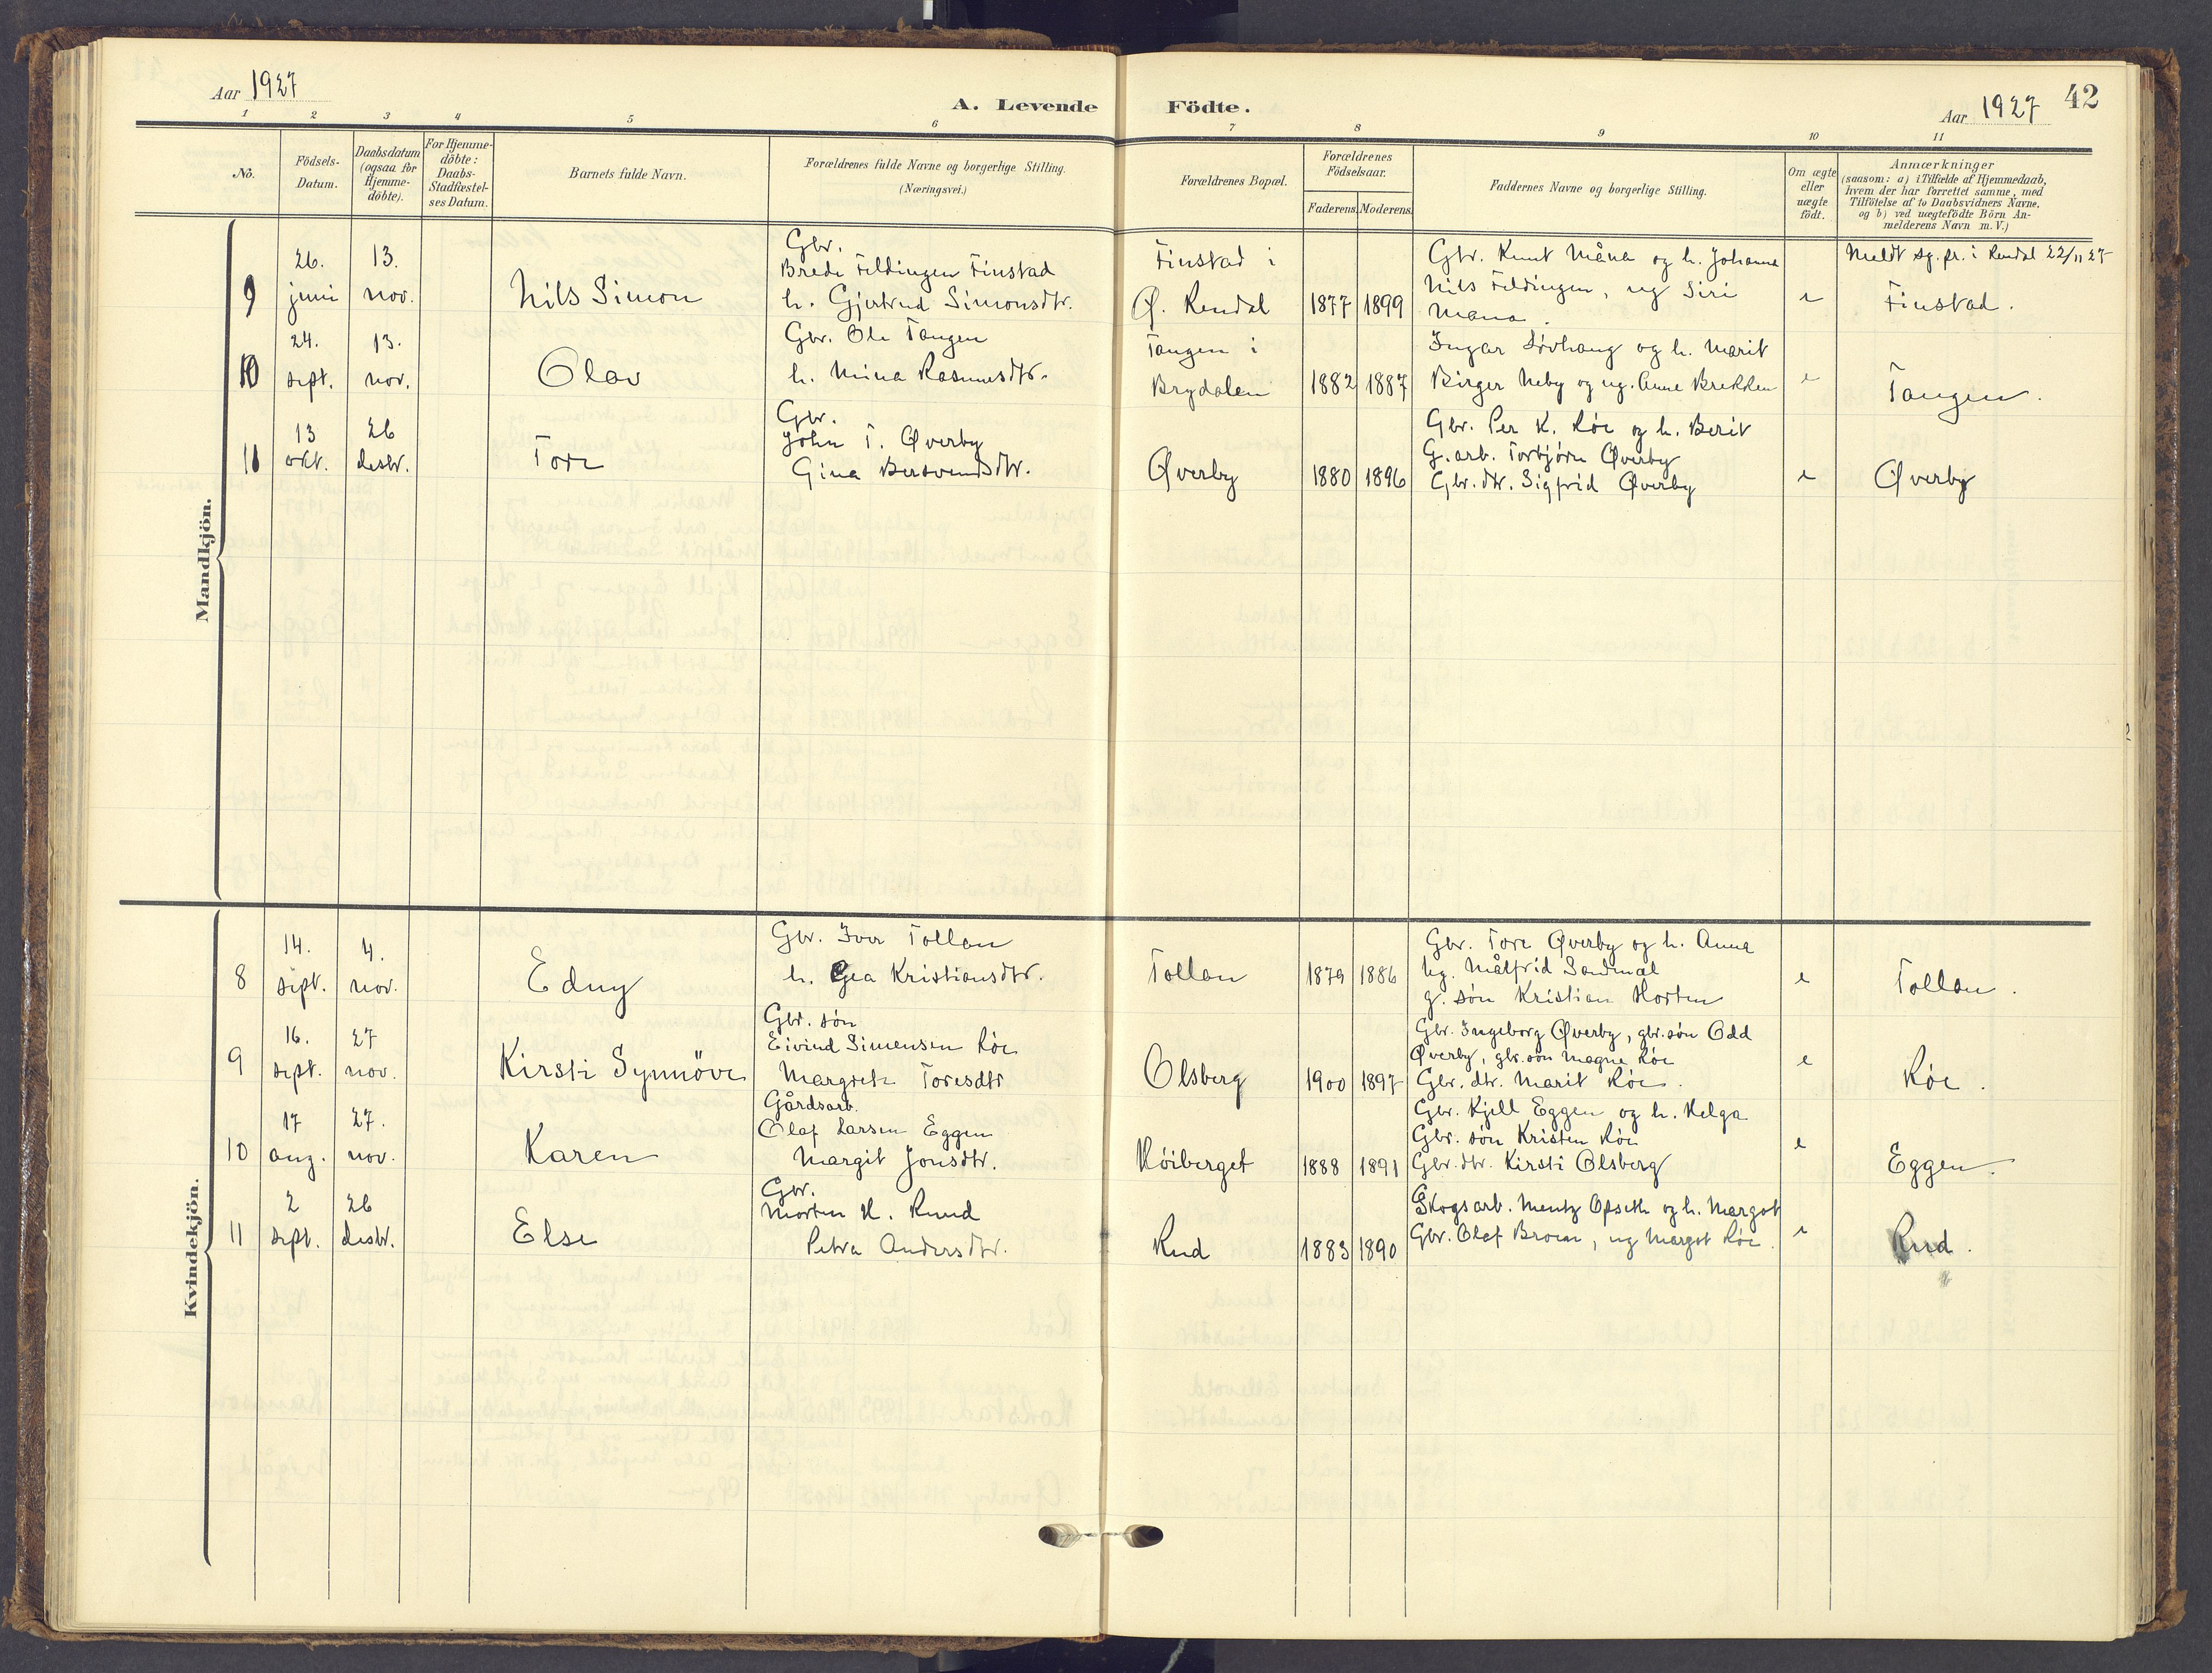 Aar 1927
A. Levende Födte.
Aar 1927 42
1 2 3 4 5 6 7 8 9 10 11
No.
Födsels-
Datum.
Daabsdatum
(ogsaa for
Hjemme-
döbte).
For Hjemme-
döbte:
Daabs-
Stadfæstel-
ses Datum.
Barnets fulde Navn.
Forældrenes fulde Navne og borgerlige Stilling.
(Næringsvei.)
Forældrenes Bopæl.
Forældrenes
Födselsaar.
Faderens. Moderens.
Faddernes Navne og borgerlige Stilling.
Om ægte
eller
uægte
födt.
Anmærkninger
(saasom: a) i Tilfælde af Hjemmedaab,
hvem der har forrettet samme, med
Tilföielse af to Daabsvidners Navne,
og b) ved uægtefödte Börn An-
melderens Navn m. V.)
Mandkjön.
9
26.
juni
13.
nov.
Nils Simon
Gbr.
Brede Fildingen Finstad
h. Gjertrud Simonsdtr.
Finstad i
Ø. Rendal
1877 1899
Gbr. Knut Måna og h. Johanne
Nils Fildingen, ug Siri
Mana.
e
Meldt sg. pr. i Rendal 22/11 27
Finstad.
10
24.
sept.
13.
nov.
Olav
Gbr. Ole Tangen
h. Mina Rasmusdtr.
Tangen i
Brydalen
1882 1887
Ingar Løvhaug og h. Marit
Birger Neby og ug. Anne Brekken
e
Tangen.
11
13
okt.
26
desbr.
Tore
Gbr.
John T. Øverby
Gina Bersvendsdtr.
Øverby
1880 1896
Gbr. Per K. Røe og h. Berit
G.arb. Torbjörn Øverby
Gbr. dtr. Sigfrid Øverby
e
Øverby
Kvindekjön.
8
14.
sept.
4.
nov.
Edny
Gbr. Iver Tollan
h. Gea Kristiansdtr.
Tollan
1879 1886
Gbr. Tore Øverby og h. Anna
ug. Målfrid Sandmæl
g. søn Kristian Horten
e
Tollan.
9
16.
sept.
27
nov.
Kirsti Synnöve
Gbr. søn
Eivind Simensen Røe
Margrete Toresdtr
Olsberg
1900 1897
Gbr. Ingeborg Øverby, gbr. søn Odd
Øverby, gbr. søn Magne Røe
Gbr. dtr. Marit Røe.
e
Røe.
10
17
aug.
27.
nov.
Karen
Gårdsarb.
Olaf Larsen Eggen
Margit Jonsdtr.
Røiberget
1888 1891
Gbr. Kjell Eggen og h. Helga
Gbr. søn Kristen Røe
Gbr. dtr. Kirsti Olsberg
e
Eggen.
11
2
sept.
26
desbr.
Else
Gbr.
Morten H. Ruud
Petra Andersdtr.
Rud
1883 1890
Skogsarb. Mentz Opseth og h. Margot
Gbr. Olaf Broen, ug Margot Røe.
e
Rud.